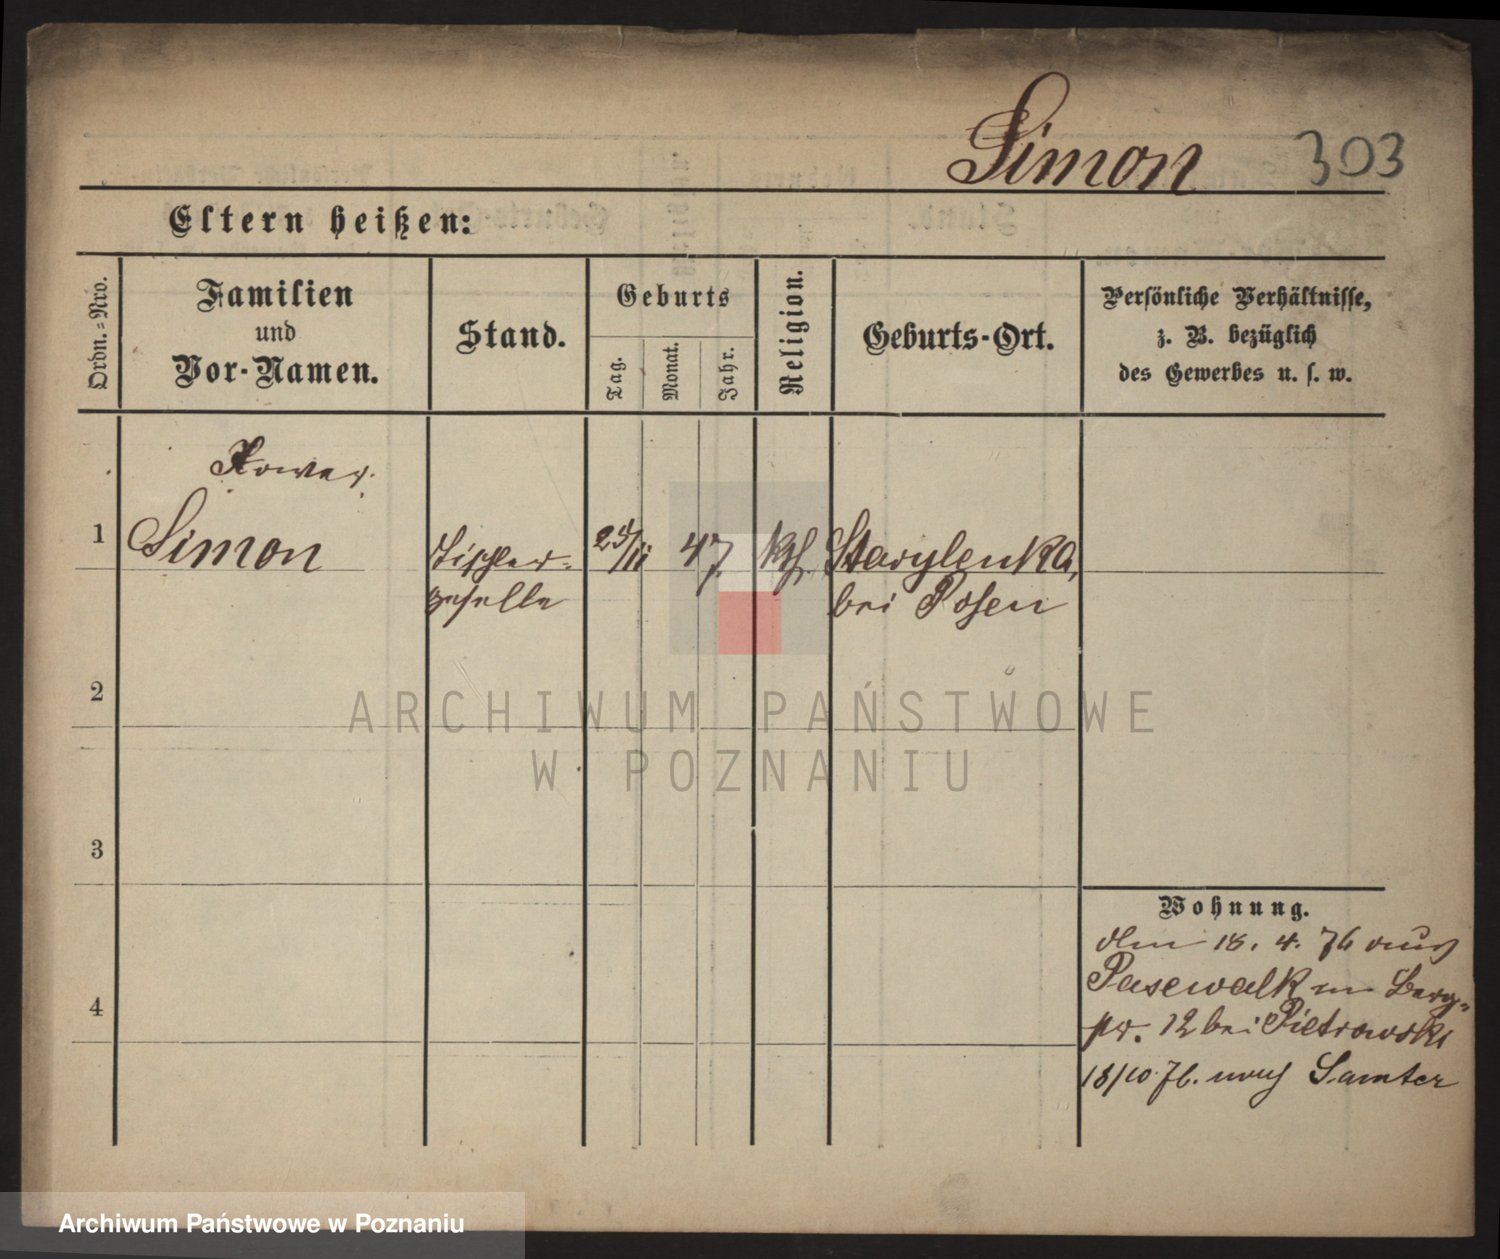 Simon 303
Eltern heißen:
Ordn.=Nro.
Familien
und
Vor-Namen.
Stand.
Geburts
Tag.
Monat.
Jahr.
Religion.
Geburts-Ort.
Persönliche Verhältnisse,
z. B. bezüglich
des Gewerbes u. s. w.
1 Simon Tischler- 47 kth. Starylenka,
geselle bei Posen
2
ARCHIWUM PAŃSTWOWE
W POZNANIU
3
Wohnung.
18. 4. 76 aus
Pasewalk Berg-
4
str. 12 bei Pietrowski
18/10 76. nach Samter
Archiwum Państwowe w Poznaniu